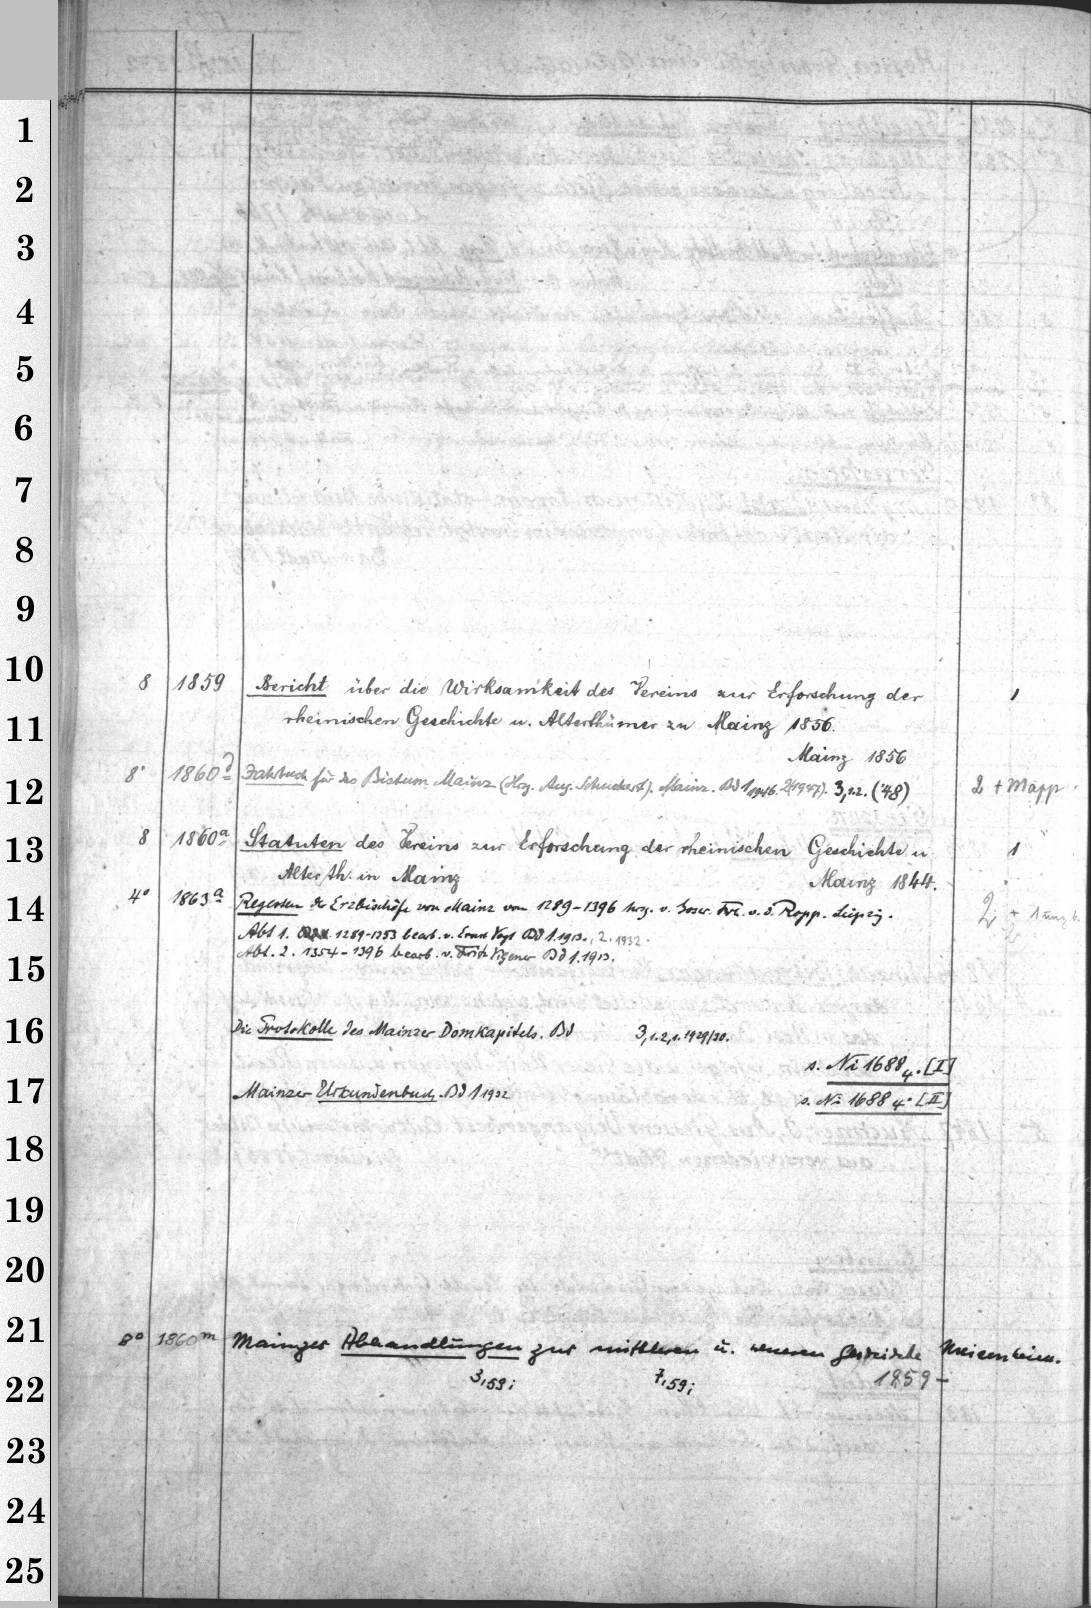 1
2
3
4
5
6
7
8
9
10
8 1859 Bericht über die Wirksamkeit des Vereins zur Erforschung der 1
11
rheinischen Geschichte u. Alterthümer zu Mainz 1856.
Mainz 1856
12
8° 1860 Jahrbuch für das Bistum Mainz (Hrg. Aug. Schuchert). Mainz. Bd 1 1946. 2(1947). 3,1.2. ('48) 2 + Mapp
13
8 1860a Statuten des Vereins zur Erforschung der rheinischen Geschichte u 1
Alterth. in Mainz Mainz 1844.
14
4° 1863a Regesten der Erzbischöfe von Mainz von 1289-1396 hrg. v. Goswin Frh. v. d. Ropp. Leipzig. 2
Abt 1. 1289-1353 bearb. v. Ernst Vogt Bd 1.1913., 2. 1932.
15
Abt. 2. 1354-1396 bearb. v. Fritz Vigener Bd 1.1913.
16
Die Protokolle des Mainzer Domkapitels. Bd 3,1.2,1.1929/30.
s. Ni 1688 4°. [I]
17
Mainzer Urkundenbuch. Bd 1 1932 s. Ni 1688 4° [II]
18
19
20
21
8° 1860m Mainzer Abhandlungen zur mittleren u. neueren Geschichte
22
3,59; 7,59; 1959-
23
24
25